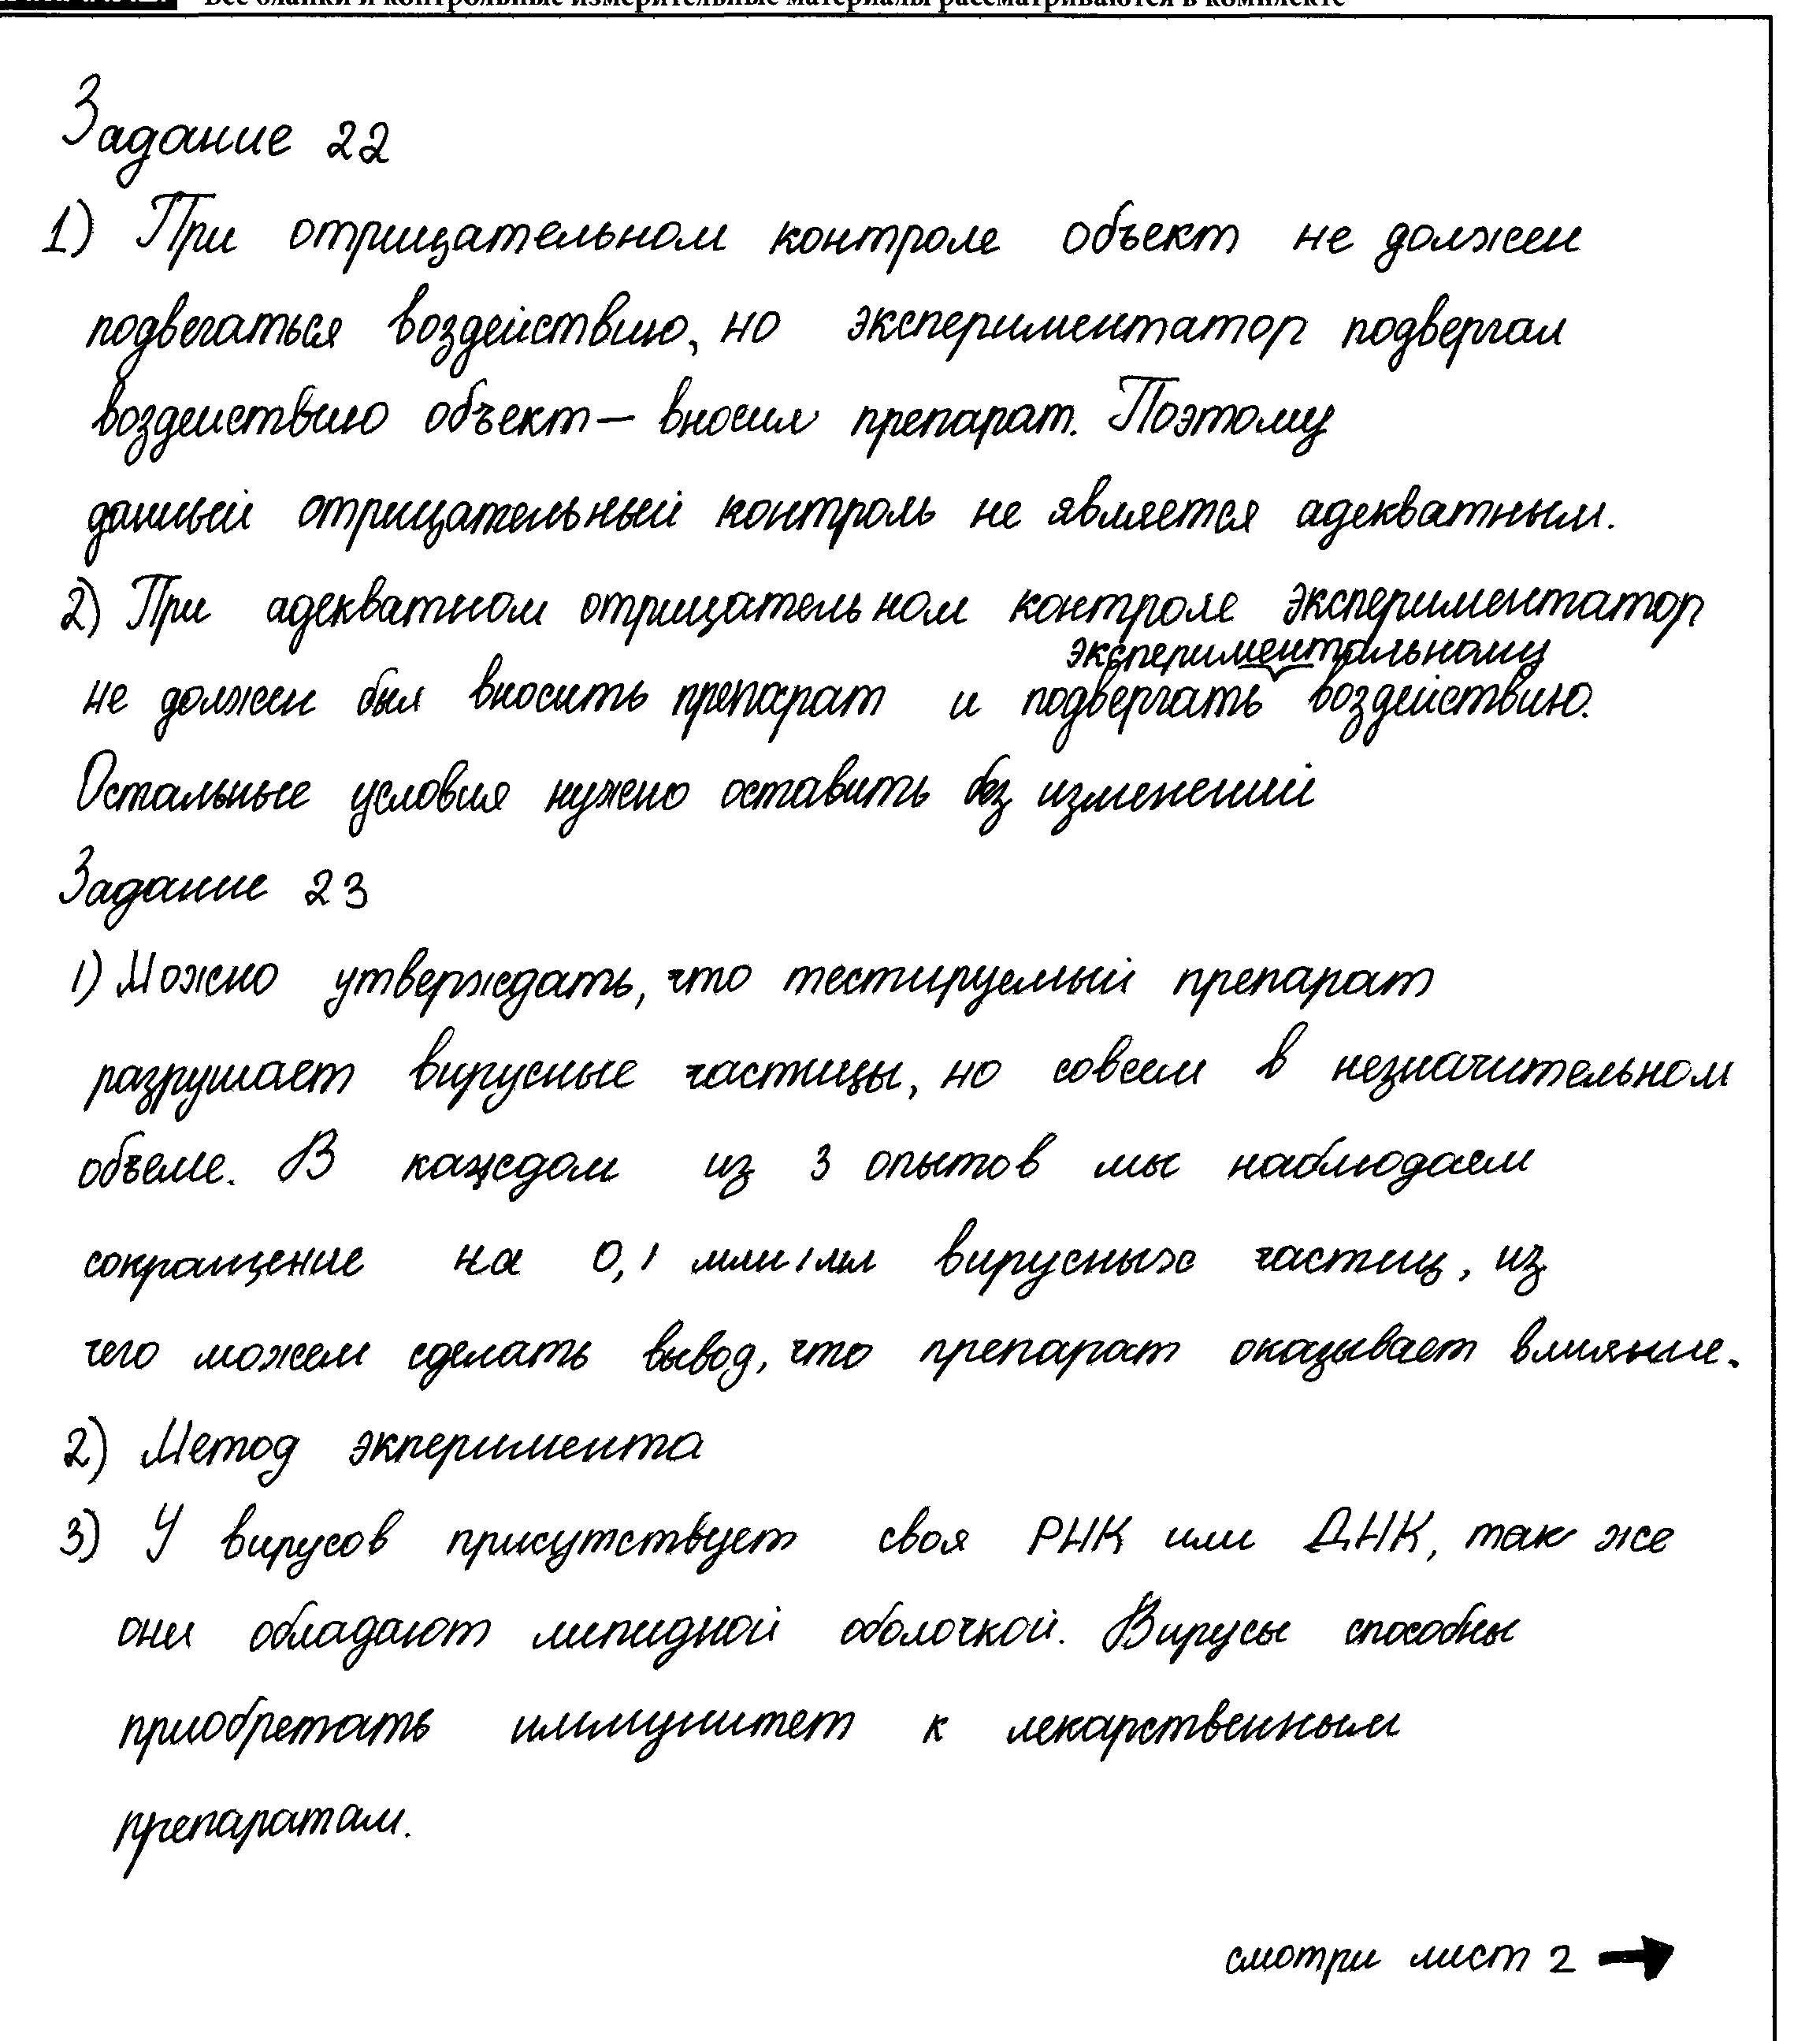 Все бланки и контрольные измерительные материалы рассматриваются в комплекте
Задание 22
1) При отрицательном контроле объект не должен
подвегаться воздействию, но экспериментатор подвергал
воздействию объект – вносил препарат. Поэтому
данный отрицательный контроль не является адекватным.
2) При адекватном отрицательном контроле экспериментатор
экспериментальному
не должен был вносить препарат и подвергать воздействию.
Остальные условия нужно оставить без изменений
Задание 23
1) Можно утверждать, что тестируемый препарат
разрушает вирусные частицы, но совсем в незначительном
объеме. В каждом из 3 опытов мы наблюдаем
сокращение на 0,1 млн/мл вирусных частиц, из
чего можем сделать вывод, что препарат оказывает влияние.
2) Метод экперимента
3) У вирусов присутствует своя РНК или ДНК, так же
они обладают липидной оболочкой. Вирусы способны
приобретать иммунитет к лекарственным
препаратам.
смотри лист 2 →